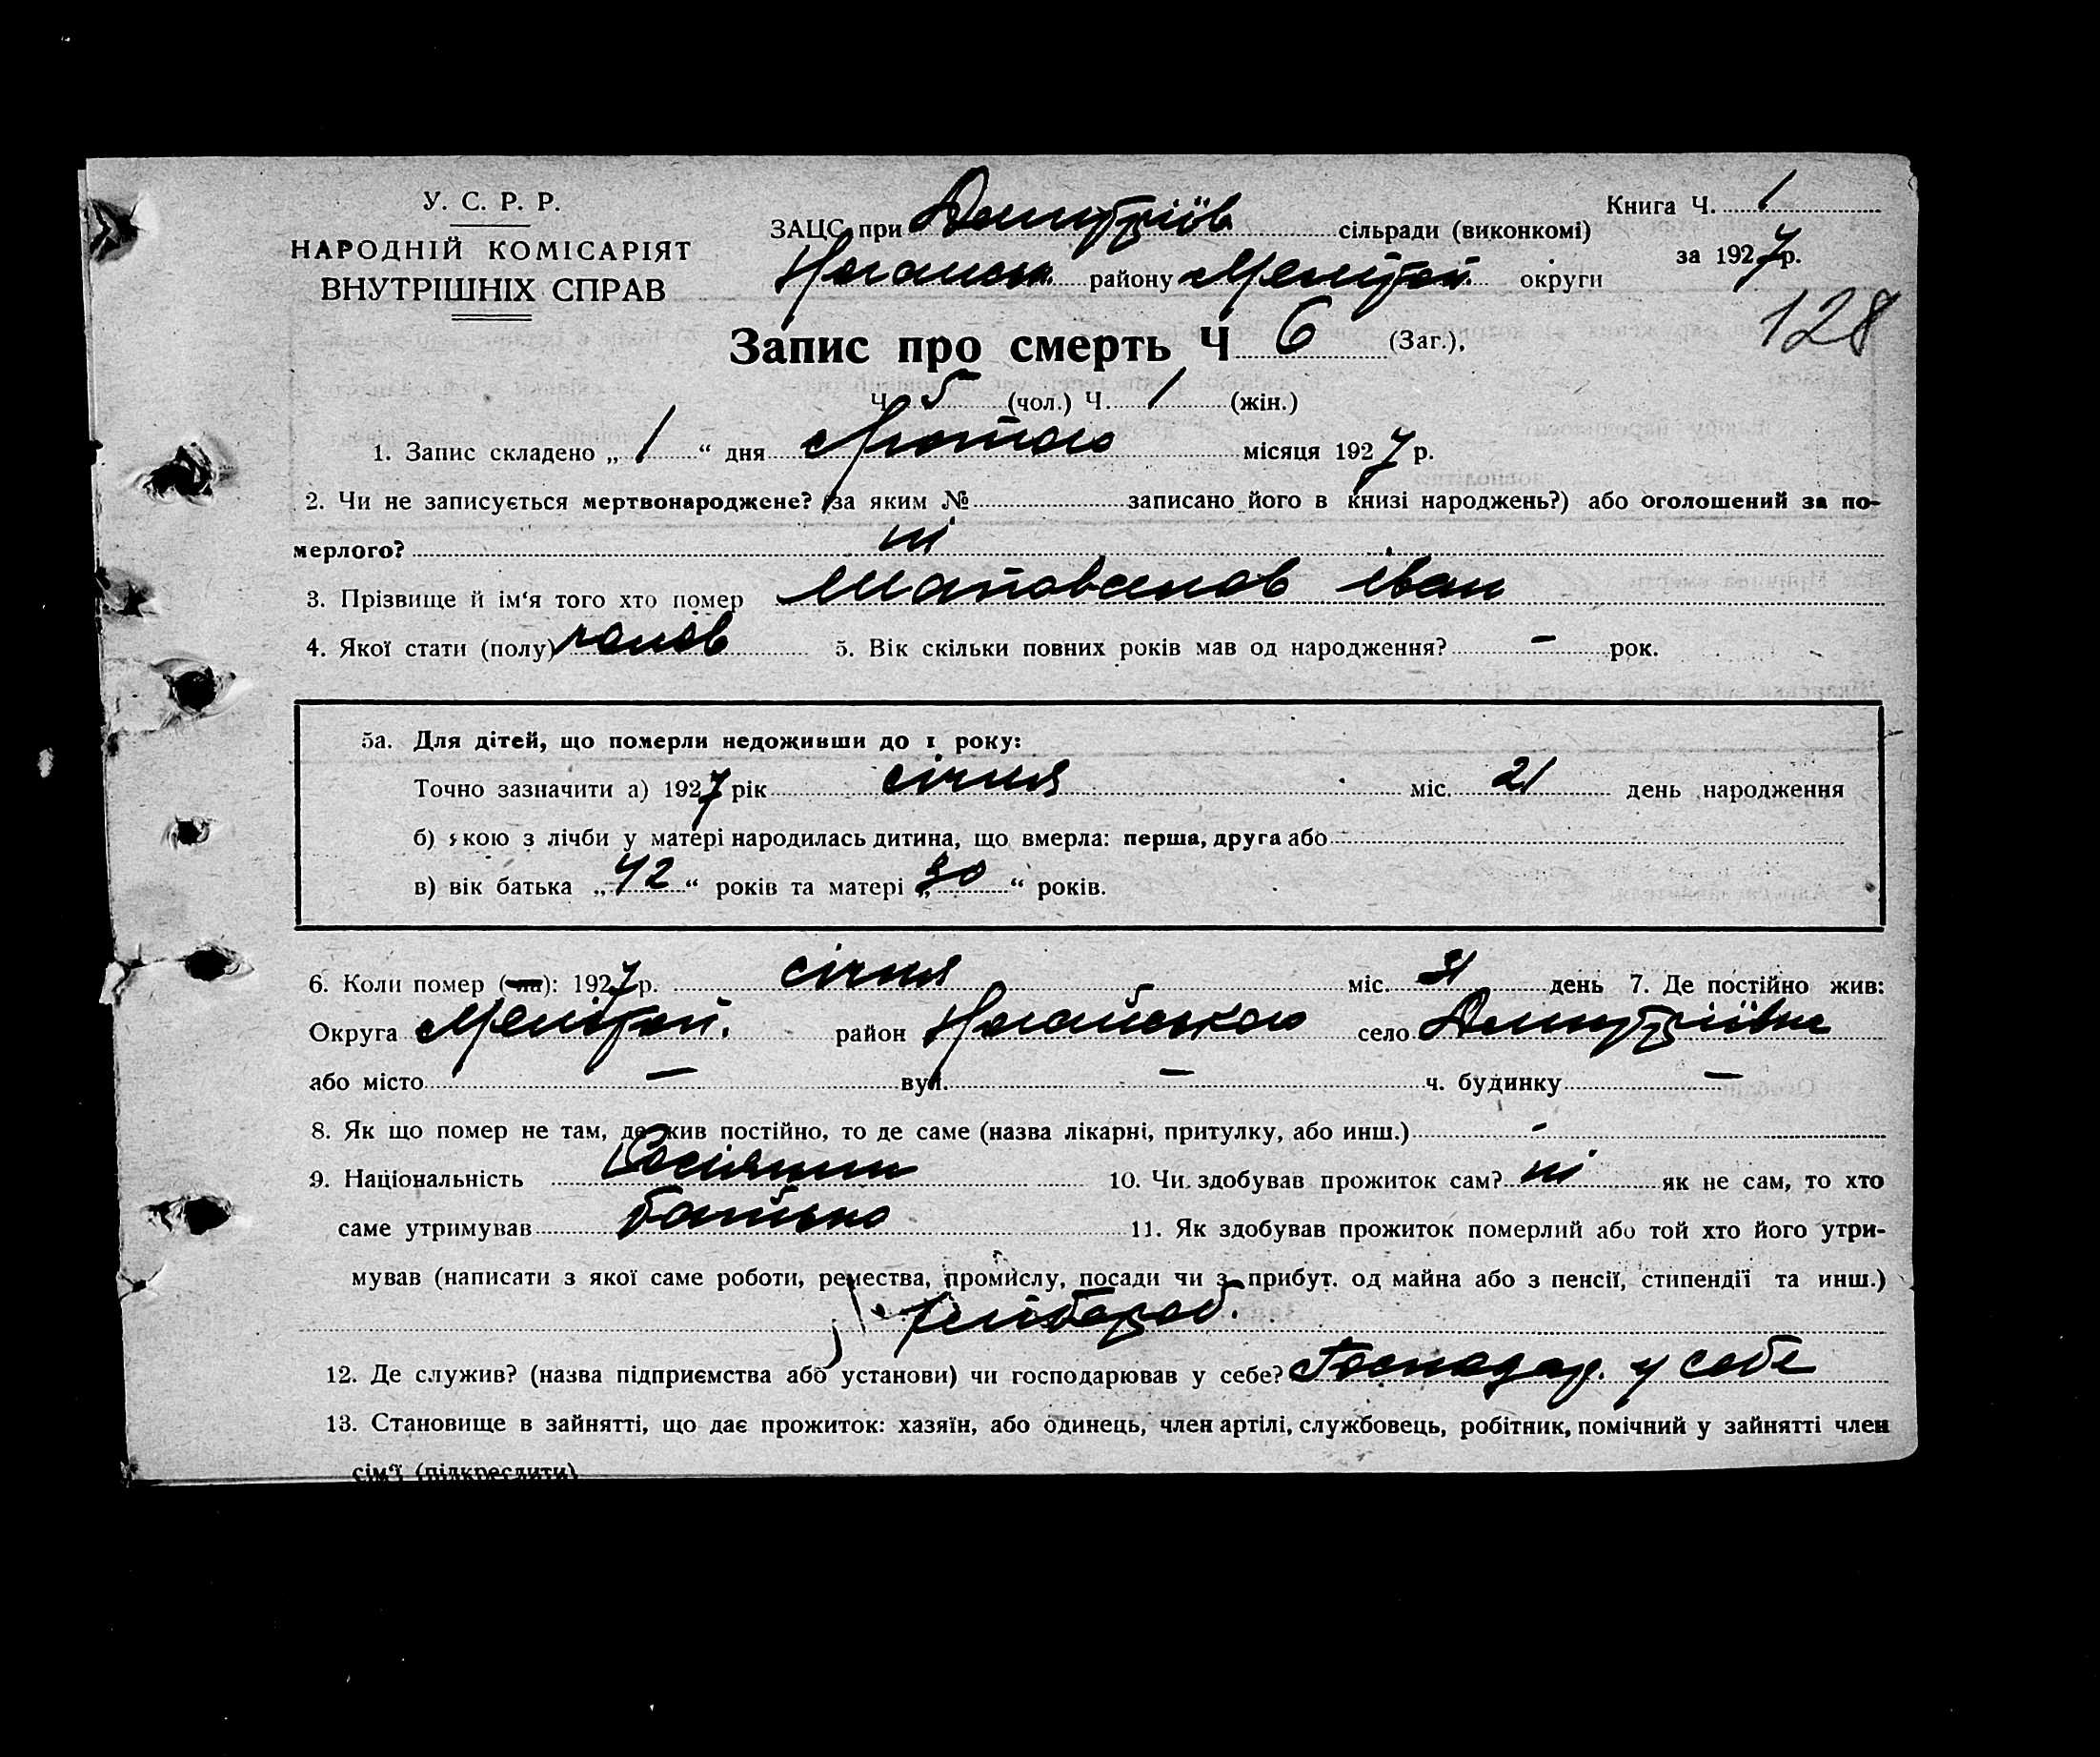 У. С. Р. Р.
НАРОДНІЙ КОМІСАРІЯТ
ВНУТРІШНІХ СПРАВ
ЗАЦС при Дмитріїв сільради (виконкомі)
Ногайськ. району Мелітоп. округи
Книга Ч. 1
за 1927 р.
128
Запис про смерть Ч 6 (Заг.),
Ч 5 (чол.) Ч. 1 (жін.)
1. Запис складено „ 1 “ дня лютого місяця 1927 р.
2. Чи не записується мертвонароджене? (за яким № записано його в книзі народжень?) або оголошений за по-
мерлого? ні
3. Прізвище й ім‘я того хто помер Шаповалов Іван
4. Якої стати (полу) чолов 5. Вік скільки повних років мав од народження? – рок.
5а. Для дітей, що померли недоживши до 1 року:
Точно зазначити а) 1927 рік січня міс. 21 день народження
б) якою з лічби у матері народилась дитина, що вмерла: перша, друга або
в) вік батька „ 42 “ років та матері „ 30 “ років.
6. Коли помер (ла): 1927 р. січня міс. 31 день 7. Де постійно жив:
Округа Мелітоп. район Ногайського село Дмитріївка
або місто — вул. — ч. будинку —
8. Як що помер не там, де жив постійно, то де саме (назва лікарні, притулку, або инш.) -
9. Національність Росіянин 10. Чи здобував прожиток сам? ні як не сам, то хто
саме утримував батько 11. Як здобував прожиток померлий або той хто його утри-
мував (написати з якої саме роботи, ремества, промислу, посади чи з прибут. од майна або з пенсії, стипендії та инш.)
хлібороб.
12. Де служив? (назва підприємства або установи) чи господарював у себе? Господар. у себе
13. Становище в зайнятті, що дає прожиток: хазяїн, або одинець, член артілі, службовець, робітник, помічний у зайнятті член
сім‘ї (підкреслити)